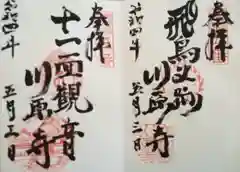 奉拝
飛鳥
川原寺
令和四年
五月三日
奉拝
十一面観音
川原寺
令和四年
五月三日